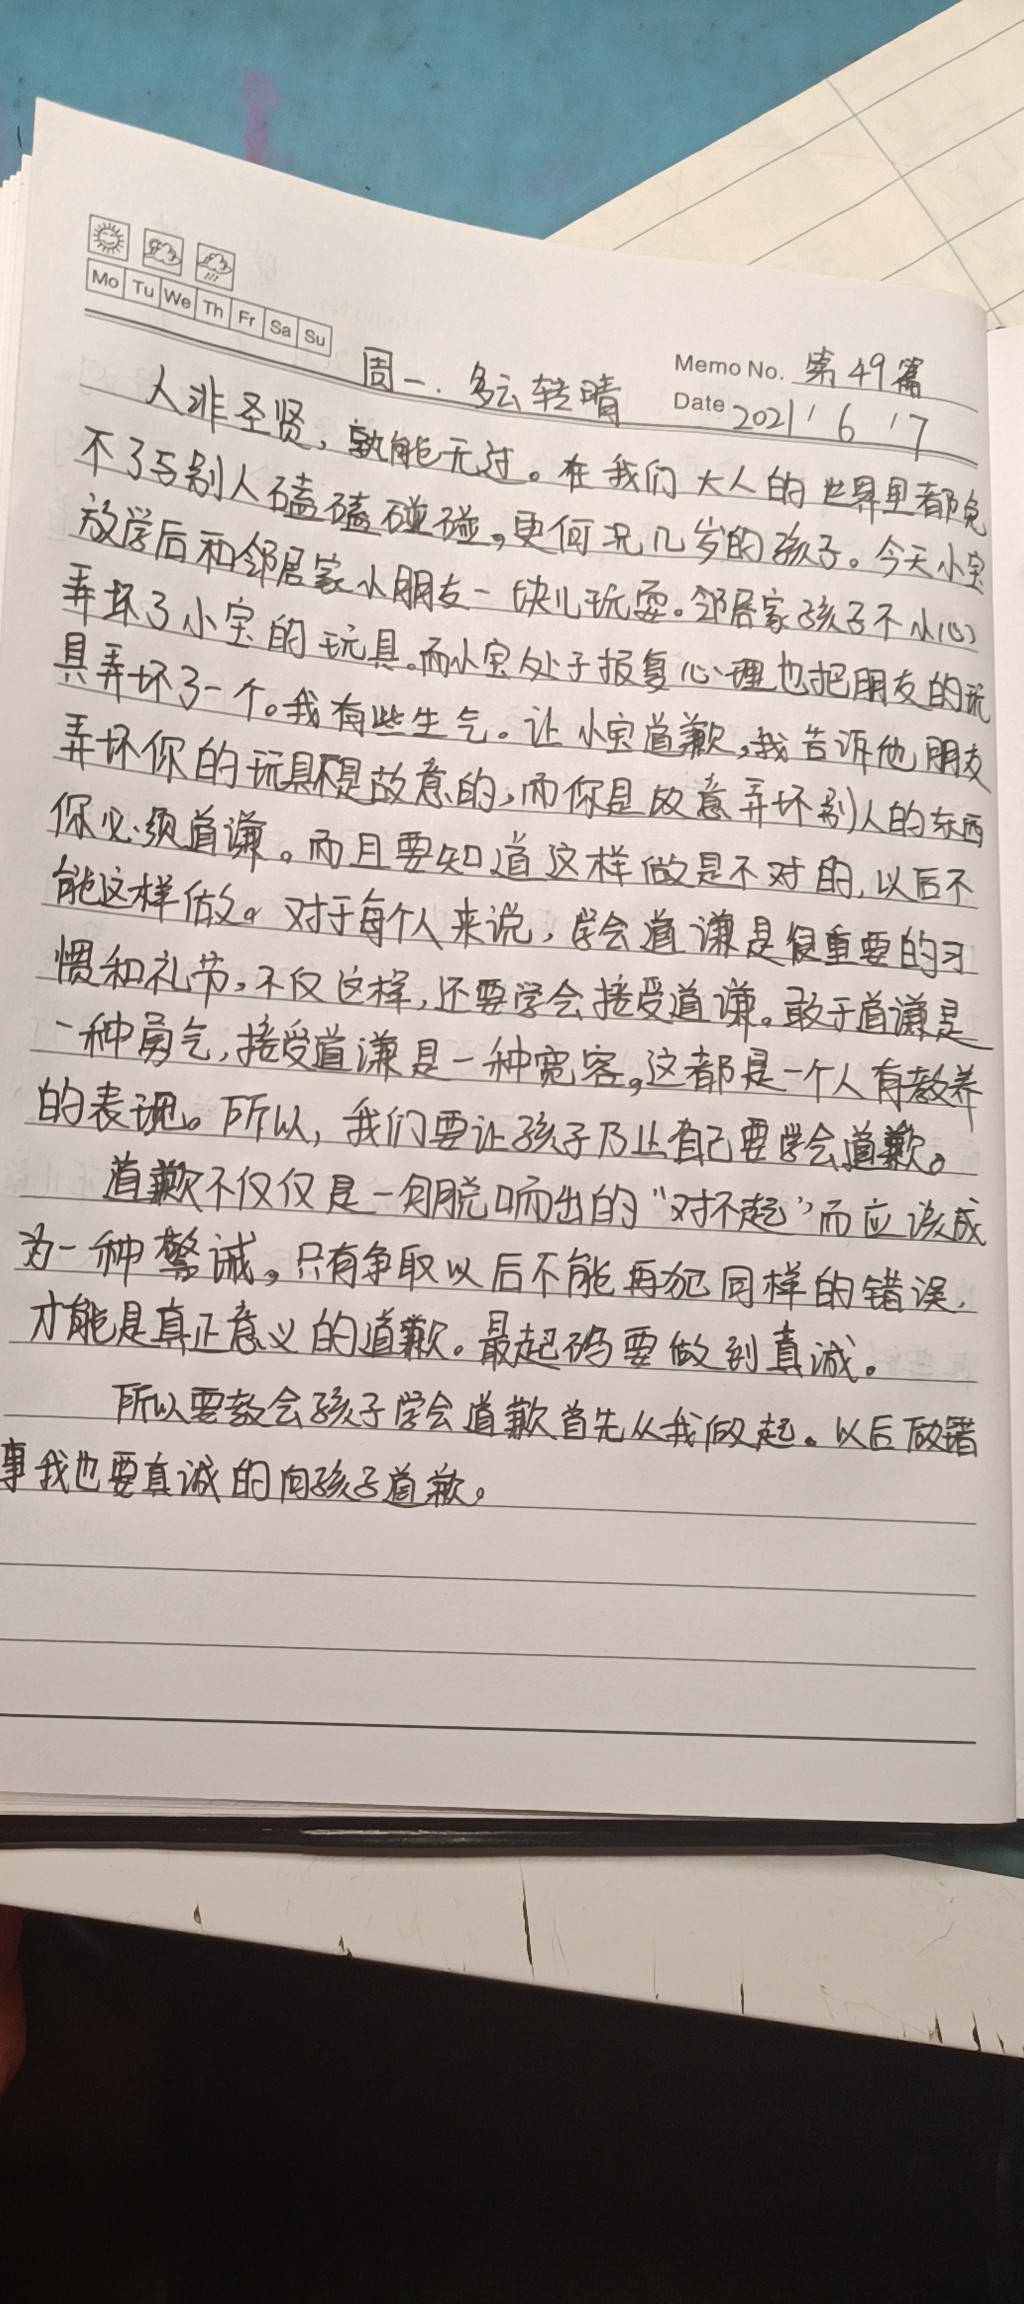 Mo Tu We Th Fr Sa Su
周一. 多云转晴
Memo No. 第49篇
Date 2021 ' 6 ' 7
人非圣贤，孰能无过。在我们大人的世界里都免
不了与别人磕磕碰碰。更何况几岁的孩子。今天小宝
放学后和邻居家小朋友一块儿玩耍。邻居家孩子不小心
弄坏了小宝的玩具。而小宝处于报复心理也把朋友的玩
具弄坏了一个。我有些生气。让小宝道歉，我告诉他朋友
弄坏你的玩具不是故意的，而你是故意弄坏别人的东西
你必须道谦。而且要知道这样做是不对的，以后不
能这样做。对于每个人来说，学会道谦是很重要的习
惯和礼节。不仅这样，还要学会接受道谦。敢于道谦是
一种勇气，接受道谦是一种宽容。这都是一个人有教养
的表现。所以，我们要让孩子乃止自己要学会道歉。
道歉不仅仅是一句脱口而出的“对不起”而应该成
为一种警诫。只有争取以后不能再犯同样的错误，
才能是真正意义的道歉。最起码要做到真诚。
所以要教会孩子学会道歉首先从我做起。以后做错
事我也要真诚的向孩子道歉。